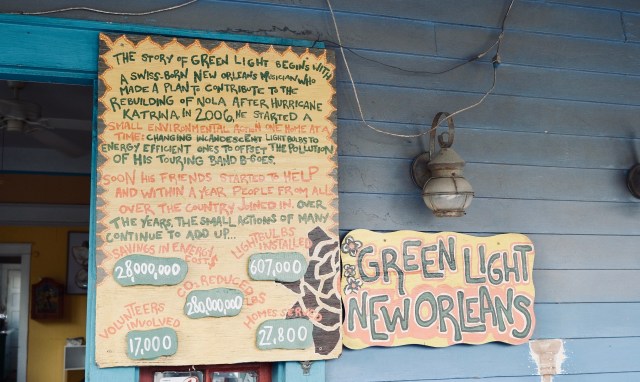 THE STORY OF GREEN LIGHT BEGINS WITH
A SWISS-BORN NEW ORLEANS MUSICIAN WHO
MADE A PLAN TO CONTRIBUTE TO THE
REBUILDING OF NOLA AFTER HURRICANE
KATRINA. IN 2006, HE STARTED A
SMALL ENVIRONMENTAL ACTION ONE HOME AT A
TIME: CHANGING INCANDESCENT LIGHTBULBS TO
ENERGY EFFICIENT ONES TO OFFSET THE POLLUTION
OF HIS TOURING BAND B-GOES.
SOON HIS FRIENDS STARTED TO HELP
AND WITHIN A YEAR PEOPLE FROM ALL
OVER THE COUNTRY JOINED IN. OVER
THE YEARS, THE SMALL ACTIONS OF MANY
CONTINUE TO ADD UP...
SAVINGS IN ENERGY
COSTS
28,000,000
LIGHTBULBS
INSTALLED
607,000
CO2 REDUCED
LBS
280,000,000
VOLUNTEERS
INVOLVED
17,000
HOMES SERVED
27,800
GREEN LIGHT
NEW ORLEANS